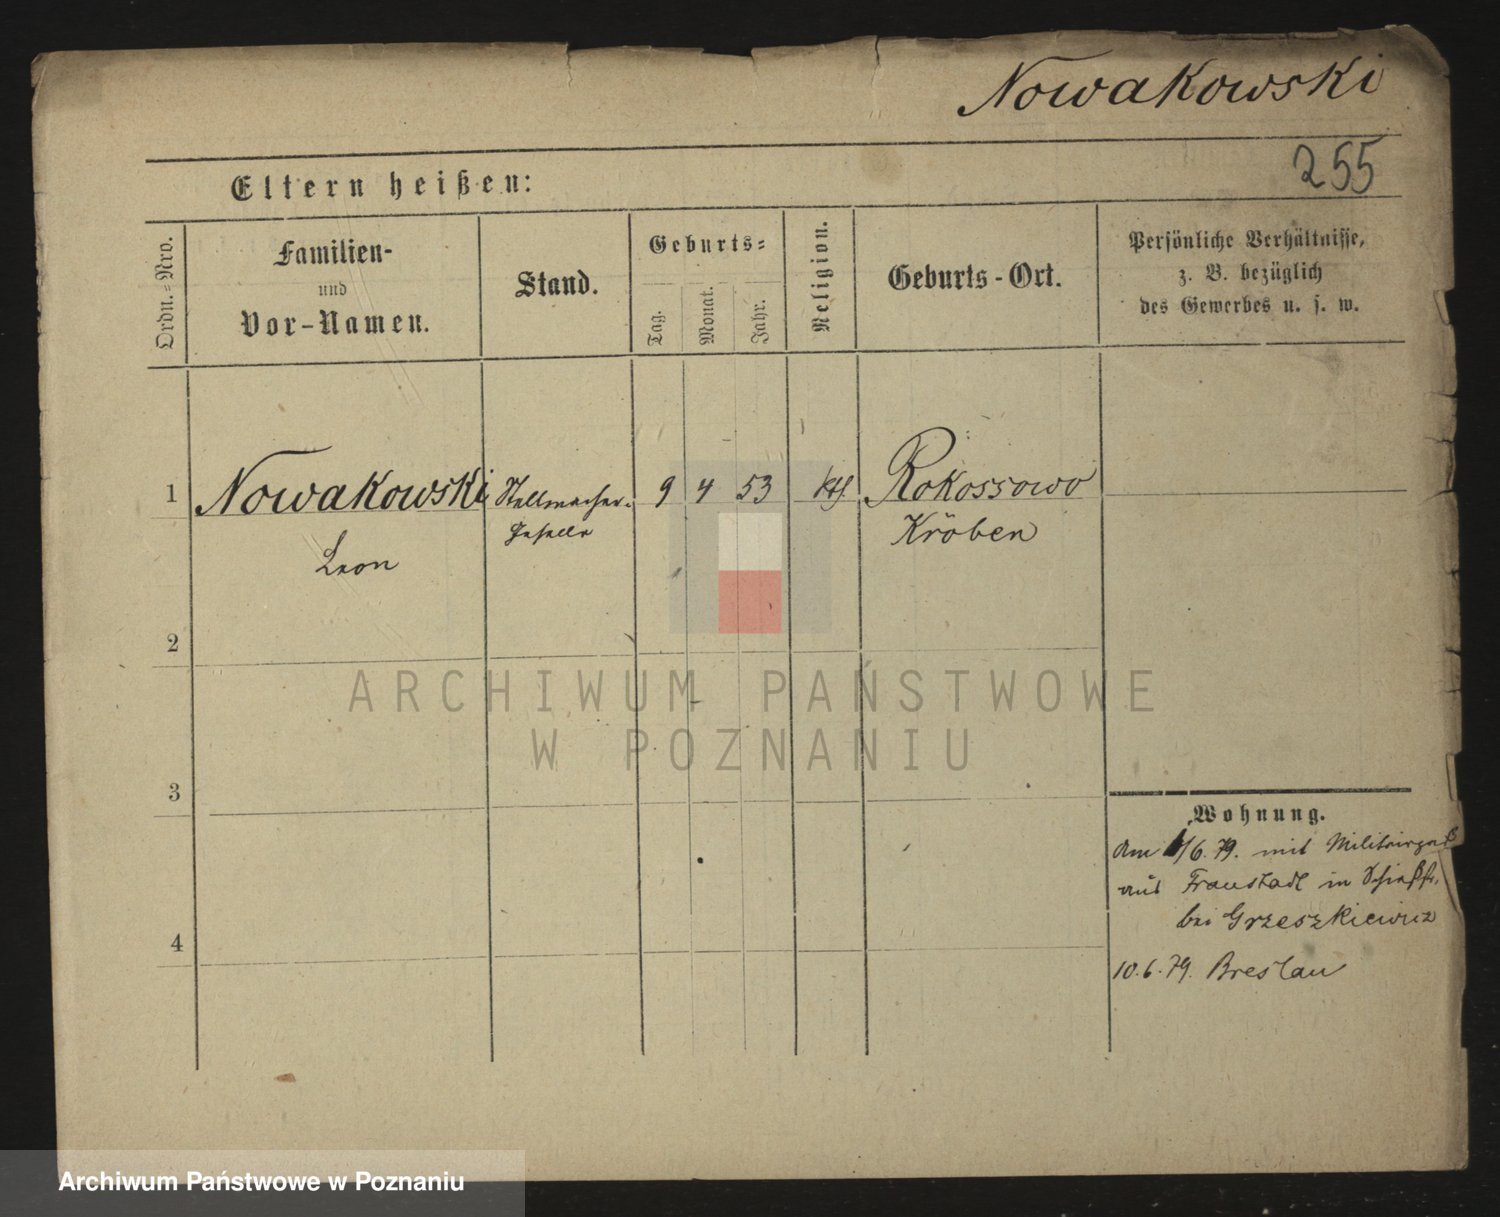 Nowakowski
255
Eltern heißen:
Ordn.=Nro.
Familien-
und
Vor-Namen.
Stand.
Geburts=
Tag.
Monat.
Jahr.
Religion.
Geburts-Ort.
Persönliche Verhältnisse,
z. B. bezüglich
des Gewerbes u. s. w.
1 Nowakowski Stellmacher- 9 4 53 kth Rokossowo
Geselle Kröben
Leon
2
ARCHIWUM PAŃSTWOWE
W POZNANIU
3
Wohnung.
Am /6. 79. mit Militairpaß
aus Fraustadt in
bei Grzeszkiewicz
4
10.6.79. Breslau
Archiwum Państwowe w Poznaniu